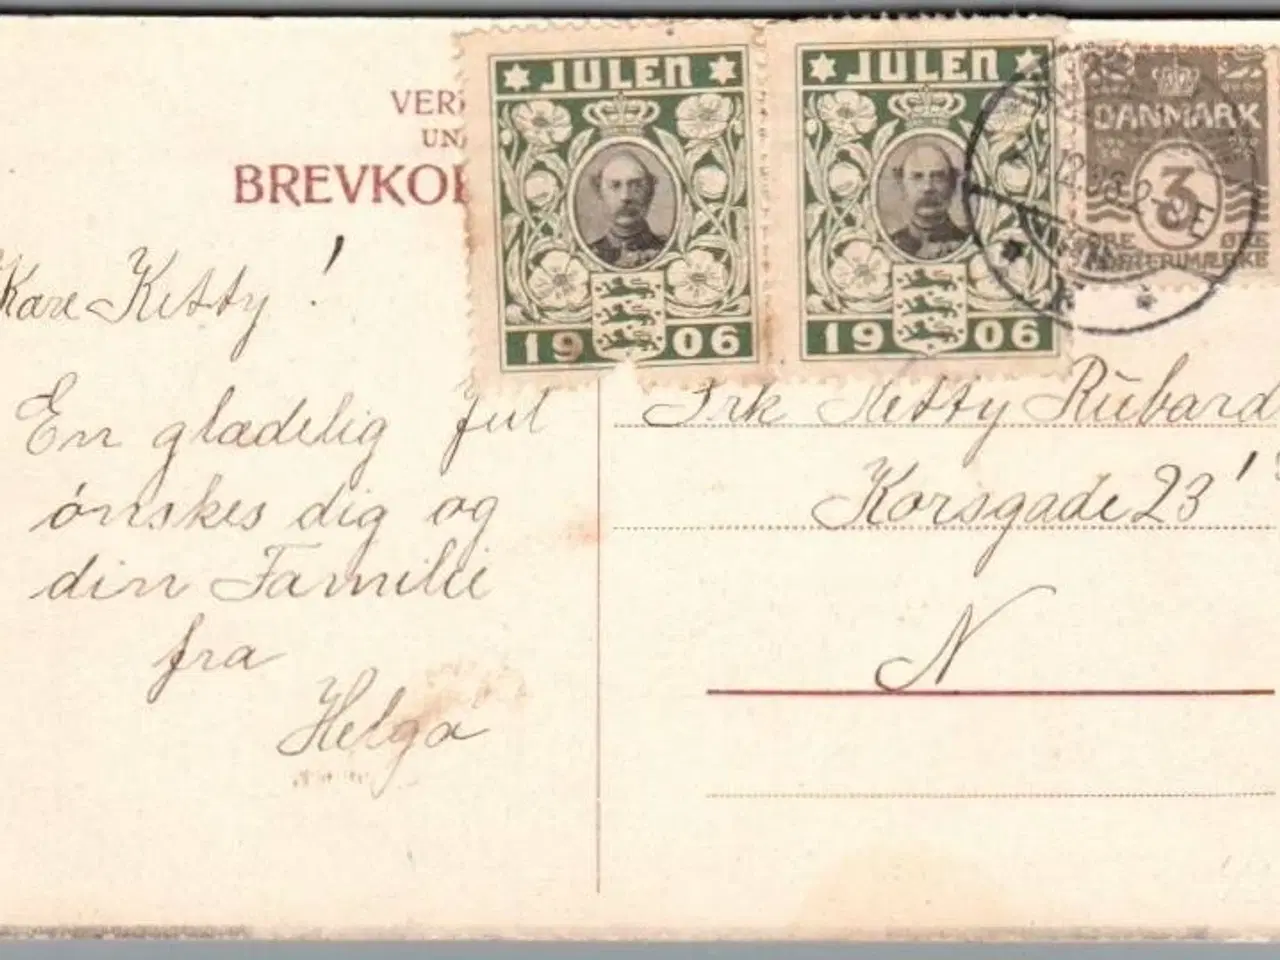 VER
UN
BREVKO
JULEN
1906
JULEN
1906
DANMARK
3
ØRE
Kære Ketty!
En glædelig Jul
ønskes dig og
din Familie
fra
Helga
Frk Ketty Rübard
Korsgade 23
N